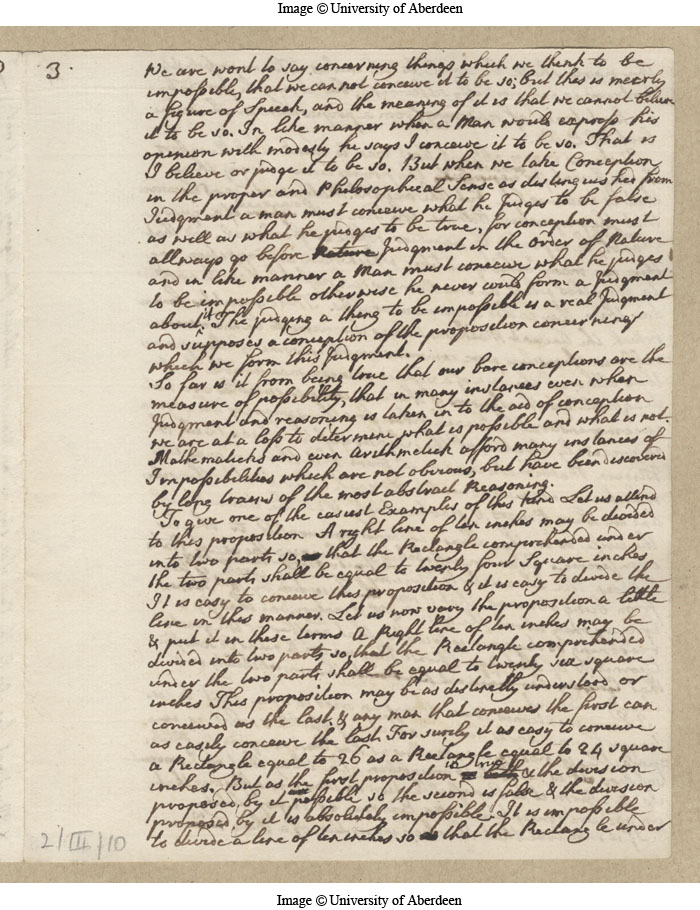 Image © University of Aberdeen
3.
We are wont to say concerning things which we think to be
impossible, that we can not conceive it to be so; but this is meerly
a figure of Speech, and the meaning of it is that we cannot believe
it to be so. In like manner when a Man would express his
opinion with modesty he says I conceive it to be so. That is
I believe or judge it to be so. But when we take Conception
in the proper and Philosophical Sense as distinguished from
Judgment a man must conceive what he judges to be false
as well as what he judges to be true, for conception must
allways go before Nature Judgment in the order of Nature
and in like manner a Man must conceive what he judges
to be impossible otherwise he never could form a Judgment
about it. The judging a thing to be impossible is a real Judgment
and supposes a conception of the proposition concerning
which we form this Judgment.
So far is it from being true that our bare conceptions are the
measure of possibility, that in many instances even when
Judgment and reasoning is taken in to the aid of conception
we are at a loss to determine what is possible and what is not.
Mathematicks and even Arithmetick afford many instances of
Impossibilities which are not obvious, but have been discovered
by long trains of the most abstract Reasoning.
To give one of the easiest Examples of this kind Let us attend
to this proposition A right line of ten inches may be divided
into two parts so, that the Rectangle comprehended under
the two parts shall be equal to twenty four Square inches
It is easy to conceive this proposition & it is easy to divide the
line in this manner. Let us now vary the proposition a little
& put it in these terms A Right line of ten inches may be
divided into two parts so, that the Rectangle comprehended
under the two parts shall be equal to twenty six square
inches This proposition may be as distinctly understood or
conceived as the last. & any man that conceives the first can
as easily conceive the last. For surely it as easy to conceive
a Rectangle equal to 26 as a Rectangle equal to 24 square
inches. But as the first proposition is true & the division
proposed by it possible so the second is false & the division
proposed by it is absolutely impossible. It is impossible
to divide a line of ten inches so that the Rectangle under
2/III/10
Image © University of Aberdeen